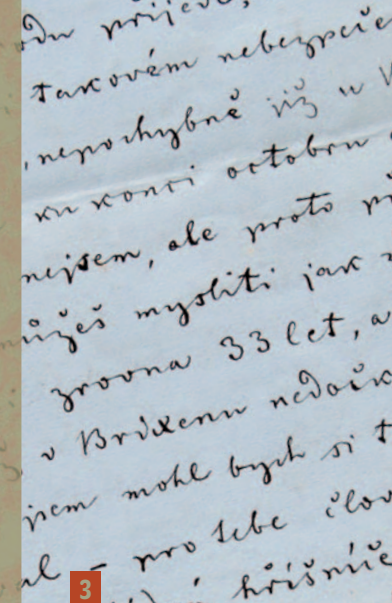 odu přijede,
takovém nebezpeče
nepochybně již u V
ku konci octobru
nejsem, ale proto př
můžeš mysliti jak
zrovna 33 let, a
v Brixenu nedočk
jsem mohl bych si t
al – pro tebe člov
hříšníče
3